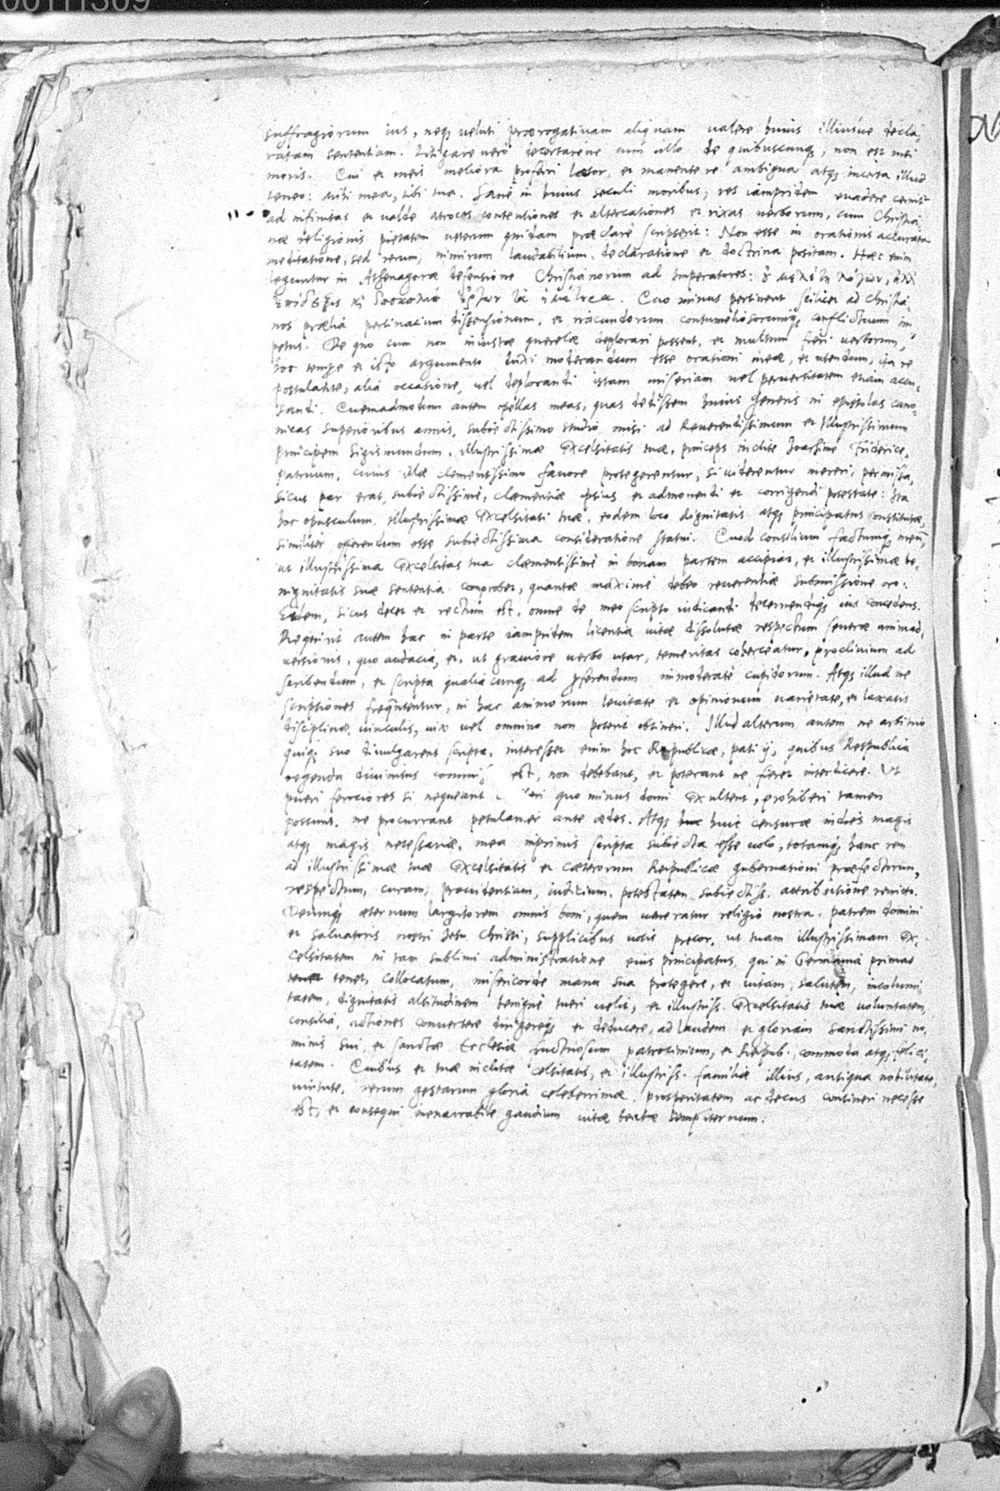 00111309
suffragiorum ius, neq; veluti praerogativam aliquam valere huius illiusve decla,
ratam sententiam. Litigare vero decertareve cum ullo de quibuscunq;, non est mei
moris. Cui ex meis meliora proferri laetor, et manente re ambigua atq; incerta illud
teneo: mihi mea, tibi tua. Sane in huius seculi moribus, res iampridem evadere cernit~
ad infinitas et valde atroces contentiones et altercationes et rixas verborum, cum Christia,
nae religionis pietatem veterum quidam praeclare scripserit: Non esse in orationis accurata
meditatione, sed rerum, nimirum laudabilium, declaratione et doctrina positam. Haec enim
leguntur in Athenagorae defensione Christianorum ad Imperatores: λόγων, ἀλλ
Quo minus pertinent scilicet ad Christia,
nos praelia pertinacium dissensionum, et iracundorum contumeliosorumq; conflictuum im,
petus. De quo cum non iniustae querelae deplorari possent, et multum fieri verborum,
hoc tempore et isto argumento duxi moderandum esse orationi meae, et utendum, ita re
postulante, alia occasione, vel deplorandi istam miseriam vel perversitatem etiam accu,
sandi. Quemadmodum autem opellas meas, quas dedissem huius generis in epistolas cano,
nicas superioribus annis, subiectissimo studio misi ad Reverendissimum et Illustrissimum
principem Sigismundum, illustrissimae Excelsitatis tuae, princeps inclite Joachime Friderice,
patruum, cuius illae clementissimo favore protegerentur, si viderentur mereri, permissa,
sicut par erat, subiectissime, clementiae ipsius et admonendi et corrigendi potestate: Ita
hoc opusculum illustrissimae Excelsitati tuae, eodem loco dignitatis atq; principatus constitutae,
similiter offerendum esse subiectissima consideratione statui. Quod consilium factumq; meum,
ut illustrissima Excelsitas tua clementissime in bonam partem accipiat, et illustrissimae be,
nignitatis suae sententia comprobet, quantae maxime debeo reverentiae submissione oro:
Eidem, sicut decet et rectum est, omne de meo scripto iudicandi decernendiq; ius concedens.
Requirit autem hac in parte iampridem licentia vitae dissolutae respectum severae animad,
versionis, quo audacia, et, ut graviore verbo utar, temeritas coherceatur, proclivium ad
scribendum, et scripta qualiacunq; ad proferendum immoderate cupidorum. Atq; illud ne
scriptiones frequententur, in hac animorum levitate et opinionum varietate, et laxatis
disciplinae vinculis, vix vel omnino non poterit obtineri. Illud alterum autem ne arbitrio
quiq; suo divulgarent scripta, interesset enim hoc Reipublicae, pati ij, quibus Respublica
regenda divinitus commis est, non debebant, et poterant ne fieret interdicere. Ut
pueri ferociores si nequeant quo minus domi exultent, prohiberi tamen
possunt, ne procurrant petulanter ante aedes. Atq; huic censurae indies magis
atq; magis necessariae, mea inprimis scripta subiecta esse volo, totamq; hanc rem
ad illustrissimae tuae Excelsitatis et caeterorum Reipublicae gubernationi praefectorum,
respectum, curam, providentiam, iudicium, potestatem subiectiss. attributione remitto.
Deumq; aeternum largitorem omnis boni, quem veneratur religio nostra, patrem domini
et salvatoris nostri Jesu Christi, supplicibus votis precor, ut tuam illustrissimam Ex,
celsitatem in tam sublimi administratione eius principatus, qui in Germania primas
tenet, collocatum, misericorde manu sua protegere, et vitam, salutem, incolumi
tatem, dignitatis altitudinem benigne tueri velit, et illustriss. Excelsitatis tuae voluntatem,
consilia, actiones convertere dirigereq; et deducere, ad laudem et gloriam sanctissimi no,
minis sui, et sanctae Ecclesiae fructuosum patrocinium, et Reipub. commoda atq; felici,
tatem. Quibus et tuae inclitae celsitatis, et illustriss. familiae illius, antiqua nobilitate,
virtute, rerum gestarum gloria celeberrimae, prosperitatem ac decus contineri necesse
est, et consequi inenarrabile gaudium vitae beatae sempiternum.